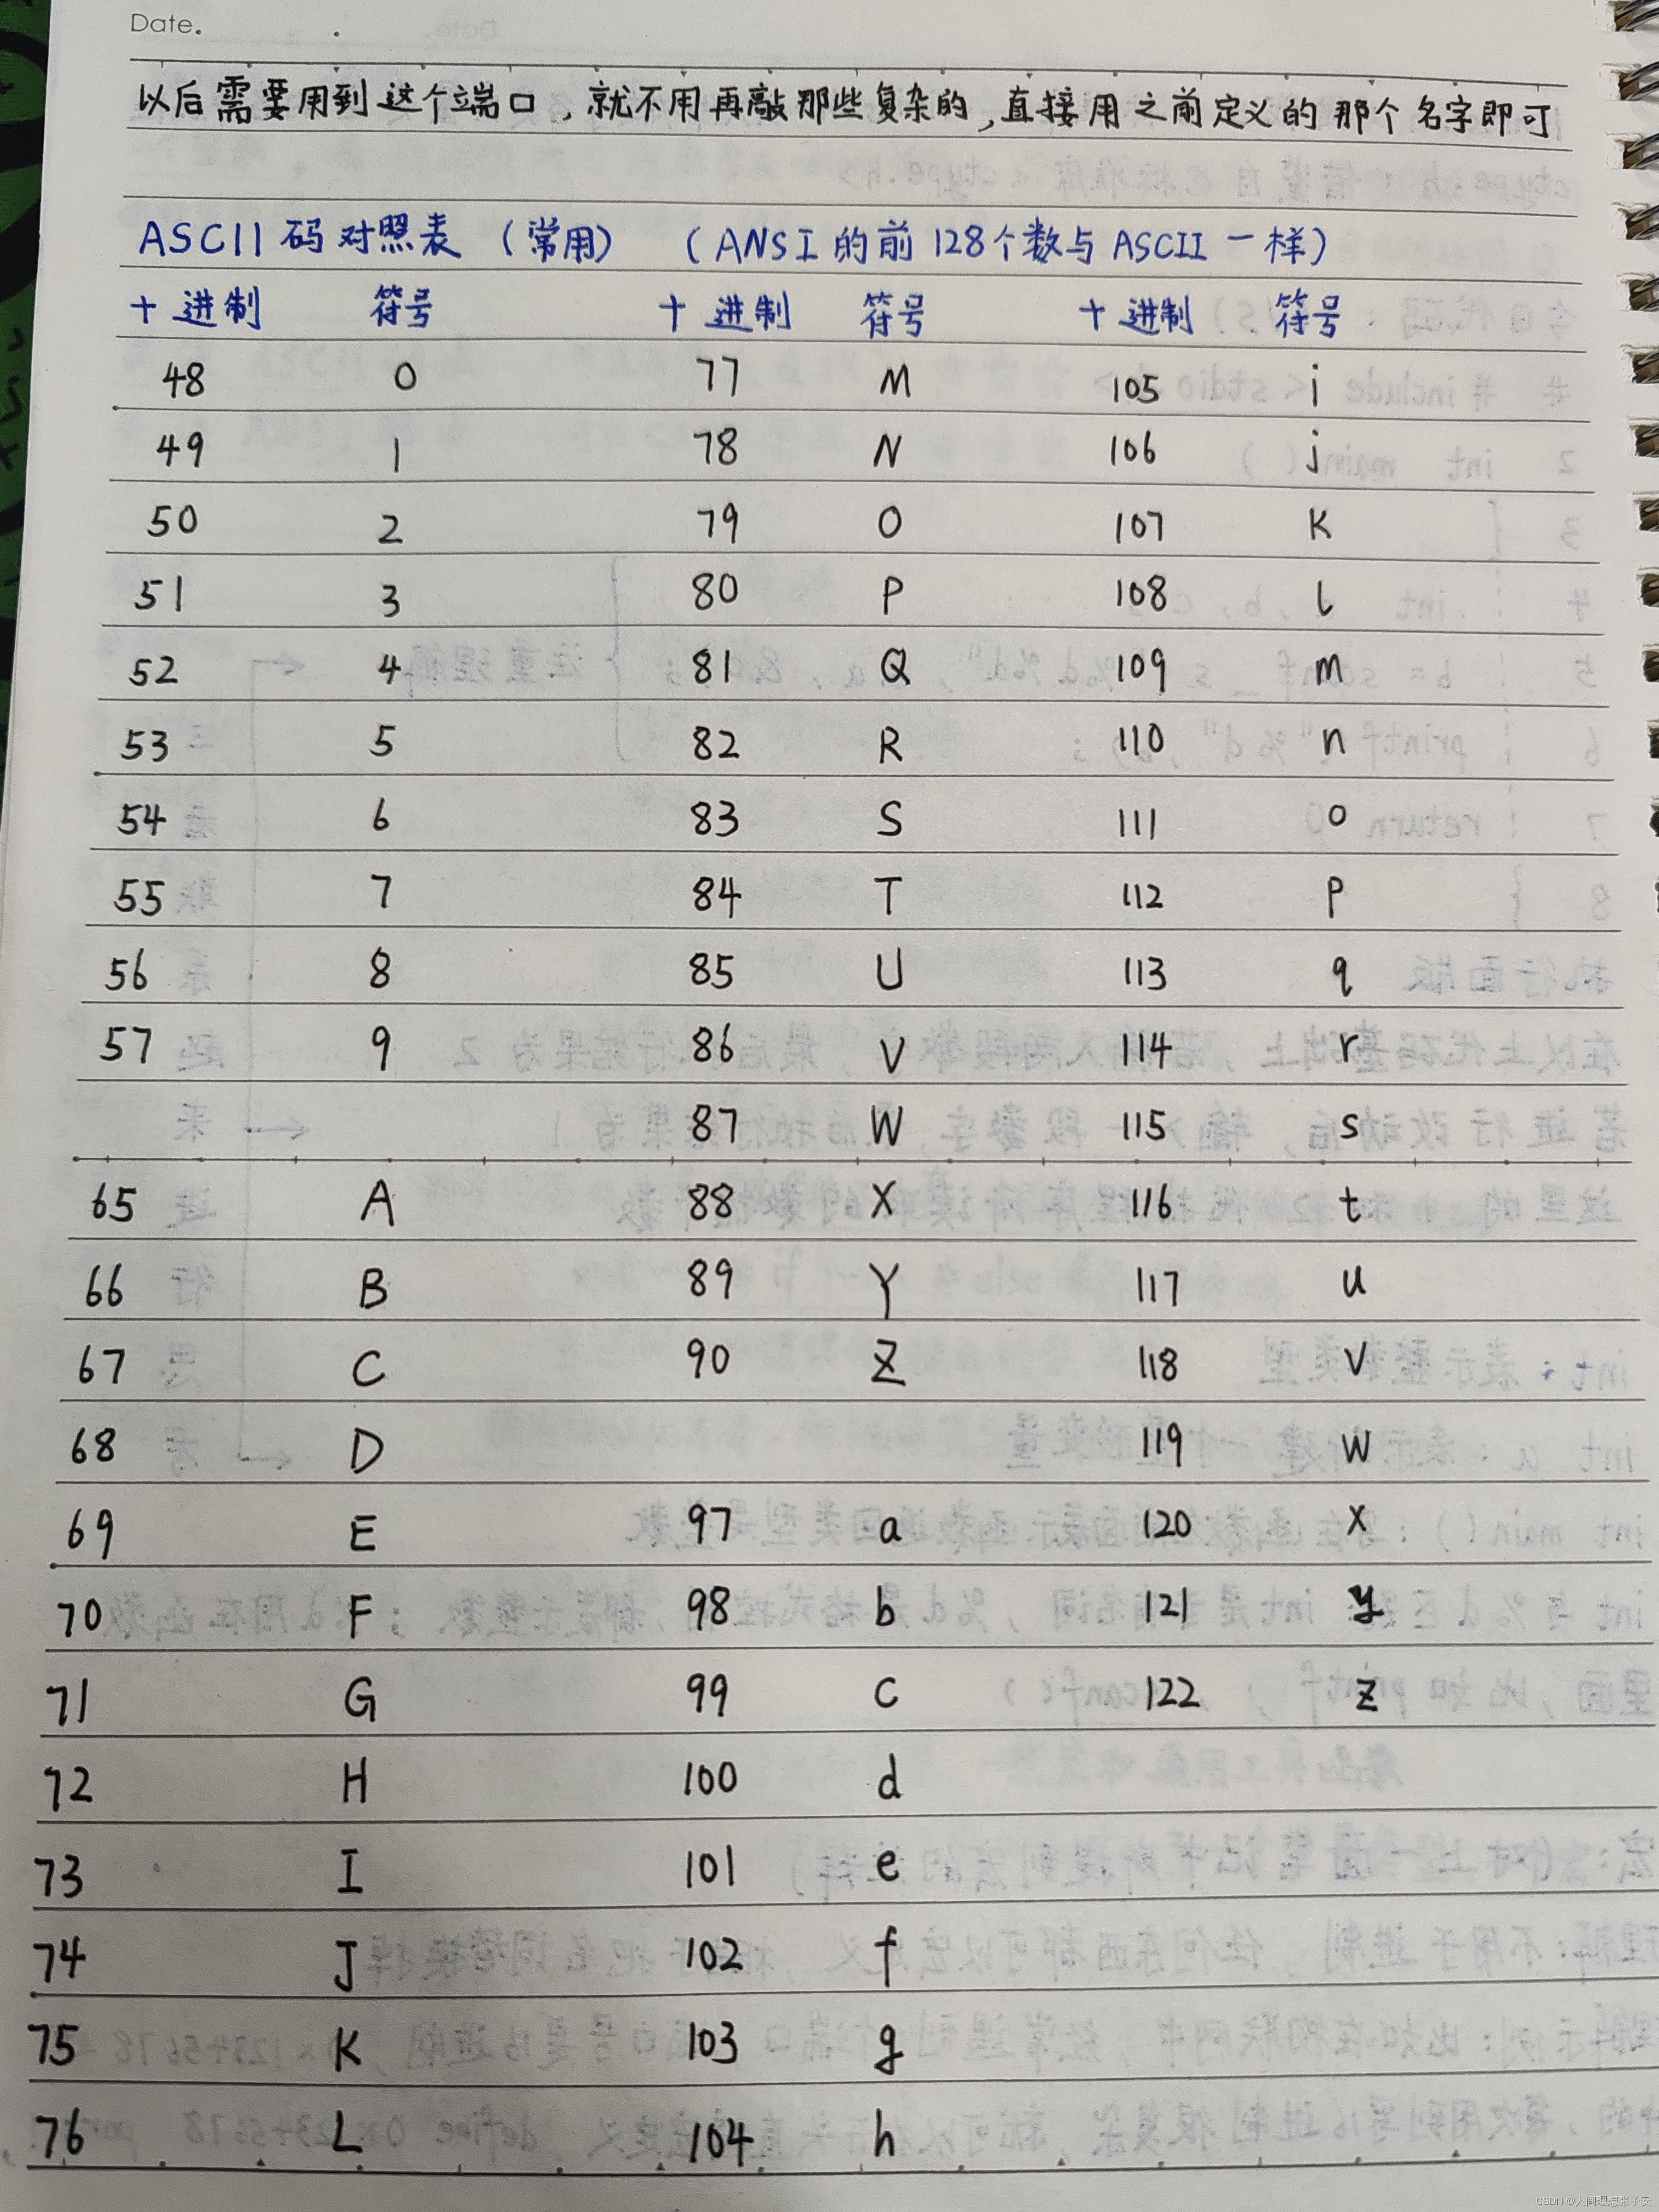 Date.
以后需要用到这个端口，就不用再敲那些复杂的，直接用之前定义的那个名字即可
ASCII码对照表（常用）（ANSI的前128个数与ASCII一样）
十进制 符号 十进制 符号 十进制 符号
48 0 77 M 105 i
49 1 78 N 106 j
50 2 79 O 107 K
51 3 80 P 108 l
52 4 81 Q 109 m
53 5 82 R 110 n
54 6 83 S 111 o
55 7 84 T 112 p
56 8 85 U 113 q
57 9 86 V 114 r
87 W 115 s
65 A 88 X 116 t
66 B 89 Y 117 u
67 C 90 Z 118 v
68 D 119 w
69 E 97 a 120 x
70 F 98 b 121 y
71 G 99 c 122 z
72 H 100 d
73 I 101 e
74 J 102 f
75 K 103 g
76 L 104 h
CSDN @人间理想张子安